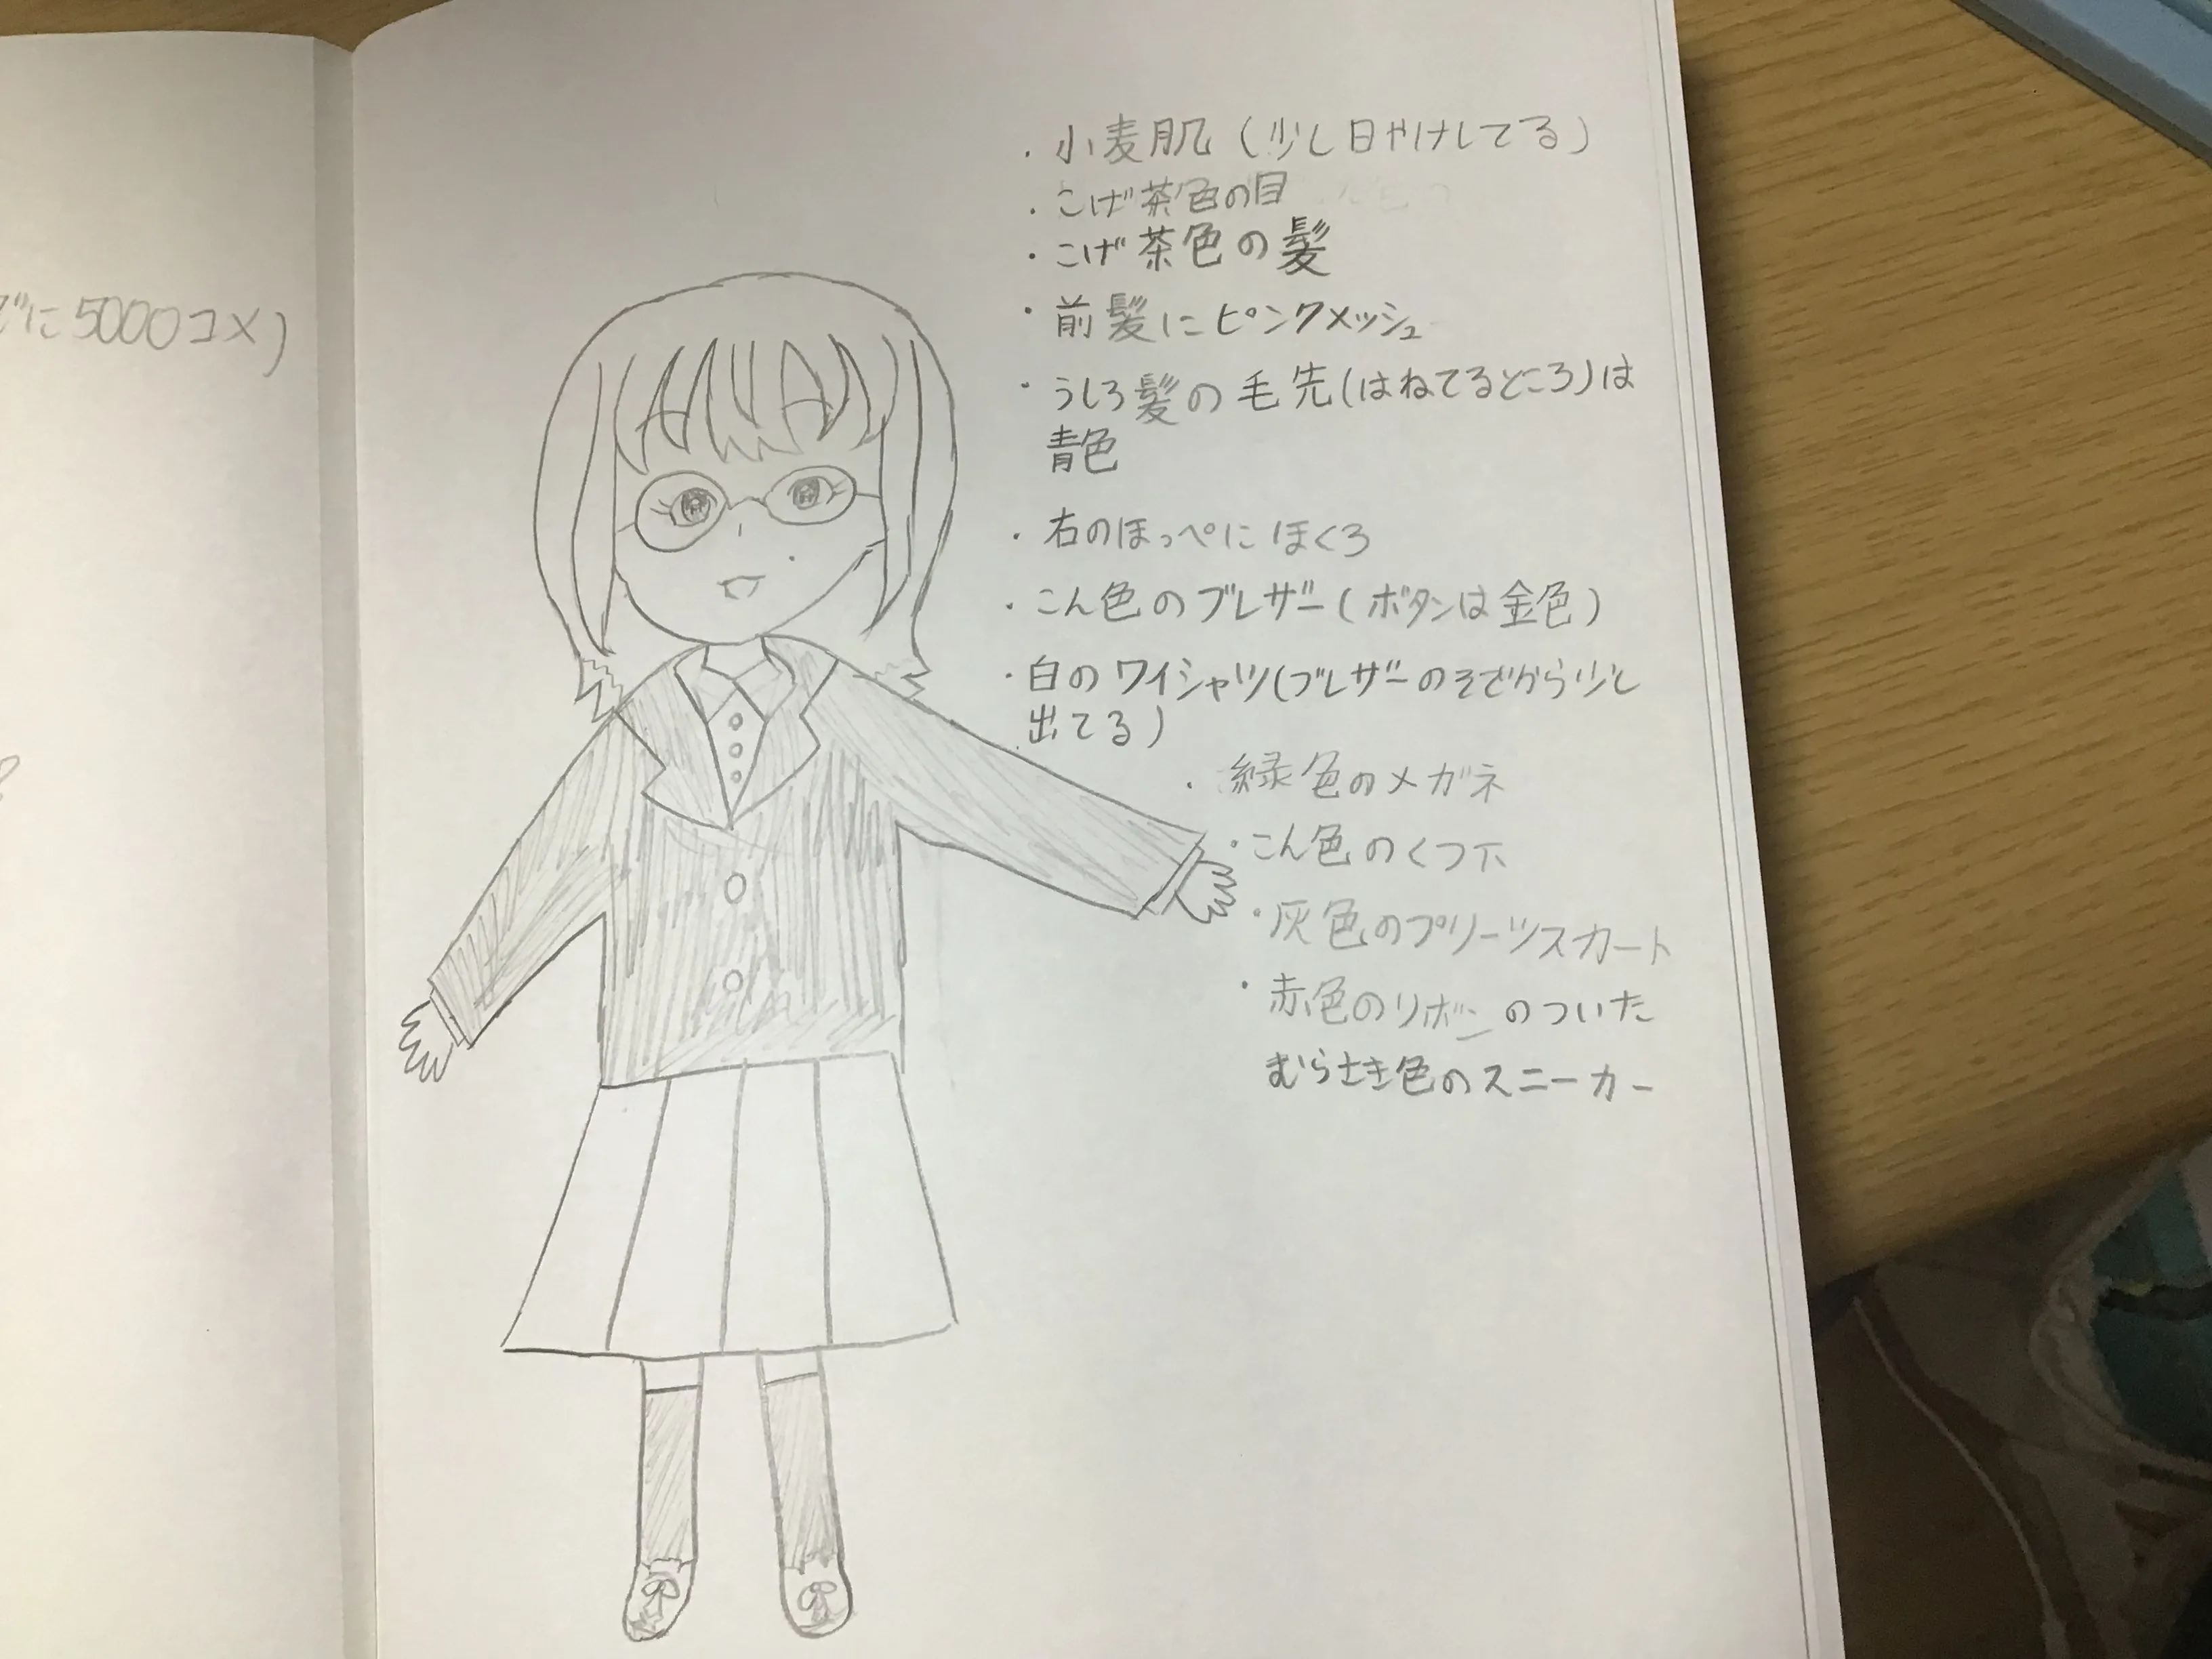 でに5000コメ)
・小麦肌(少し日やけしてる)
・こげ茶色の目
・こげ茶色の髪
・前髪にピンクメッシュ
・うしろ髪の毛先(はねてるところ)は
青色
・右のほっぺにほくろ
・こん色のブレザー(ボタンは金色)
・白のワイシャツ(ブレザーのそでから少し
出てる)
・緑色のメガネ
・こん色のくつ下
・灰色のプリーツスカート
・赤色のリボンのついた
むらさき色のスニーカー